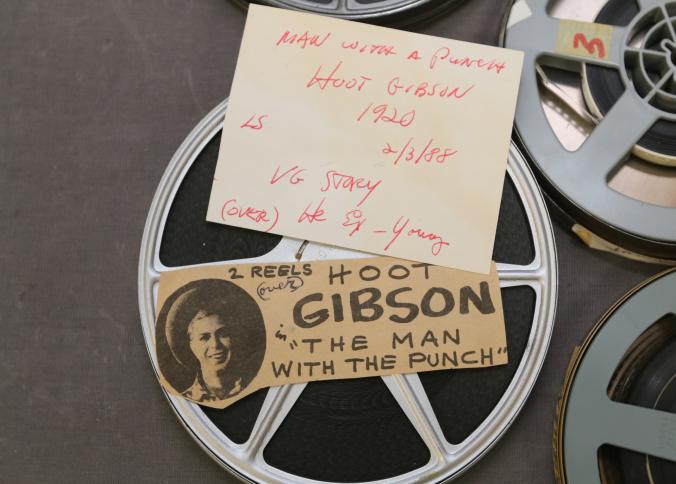 MAN WITH A PUNCH
HOOT GIBSON
1920
LS
2/3/88
VG STORY
(OVER) He Ex - Young
3
2 REELS HOOT
(over)
GIBSON
in
"THE MAN
WITH THE PUNCH"